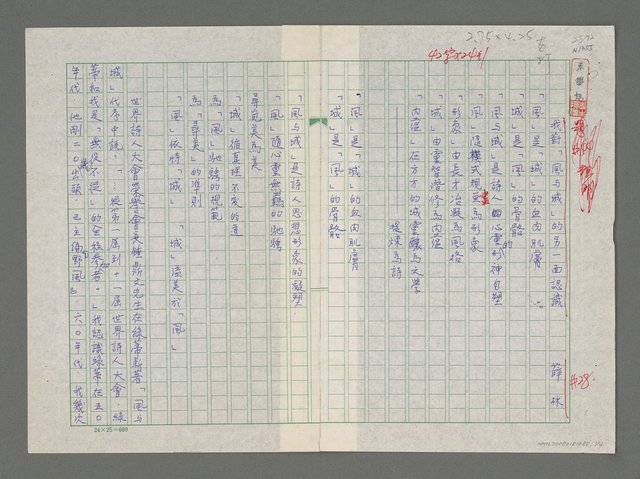 2.75×4.25
42字×24行
我對「風与城」的另一面認識
薛林
#28
「風」是「城」的血肉肌膚
「城」是「風」的骨骼
「風与城」是詩人的心靈形神自塑
「風」
形象」由長才冶煅為風格
「城」由靈智潛修為內涵
「內涵」在方方的城靈釀為文學
提煉為詩
「風」是「城」的血肉肌膚
「城」是「風」的骨骼
「風与城」是詩人思想形象的凝塑
「風」隨心靈無羈的馳騁
尋覓美為美
「城」循真理不灰的道
為「風」馳騁的規範
為「尋美」的準則
「風」依恃「城」 「城」溢美於「風」
世界詩人大會榮譽會長鍾鼎文先生在綠蒂新著「風与
城」代序中說:「…從第一屆到十一屆世界詩人大會,綠
蒂和我是「無役不從」的全程參加者。」我認識綠蒂在五〇
年代,他剛二〇出頭,已主編野風。六〇年代,我幾次
24×25=600